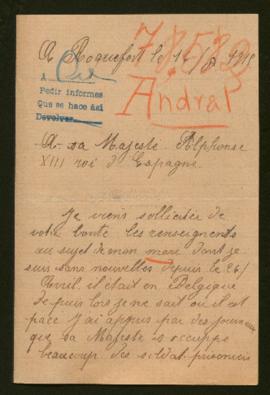 A Roquefort le 14/8 1918
78582
Andral
A
Pedir informes
Que se hace así
Devolver
A sa Majesté Alphonse
XIII roi d'Espagne
Je viens sollicitée de
votre bonté les renseignements
au sujet de mon mari dont je
suis sans nouvelles depuis le 26/
Avril il était en Belgique
depuis lors je ne sait ou il est
passé j'ai appris par des journaux
que sa Majesté s occuppe
beaucoup des soldat prisonniers